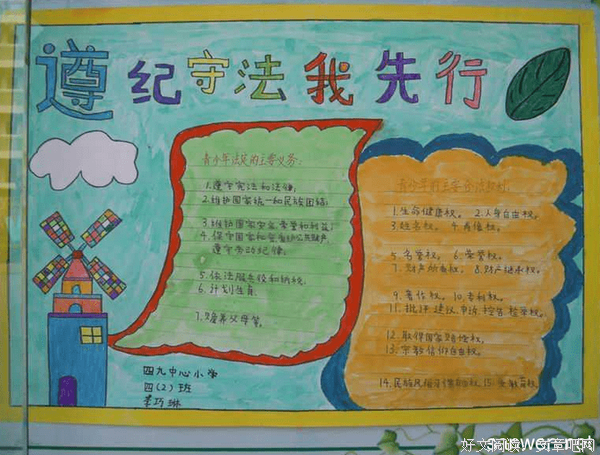 遵纪守法我先行
青少年法定的主要义务:
1.遵守宪法和法律;
2.维护国家统一和民族团结;
3.维护国家安全、荣誉和利益;
4.保守国家秘密
遵守劳动纪律;
5.依法服兵役和纳税;
6.计划生育
7.赡养父母等。
青少年的主要
1.生命健康权。 2.人身自由权。
3.姓名权。 4.肖像权。
5.名誉权。 6.荣誉权。
7.财产所有权。 8.财产继承权。
9.著作权。 10.专利权。
11.批评、建议、申诉、控告、检举权。
12.取得国家赔偿权。
13.宗教信仰自由权。
14.民族风俗习惯自由权。15.受教育权。
四九中心小学
四(2)班
李巧琳